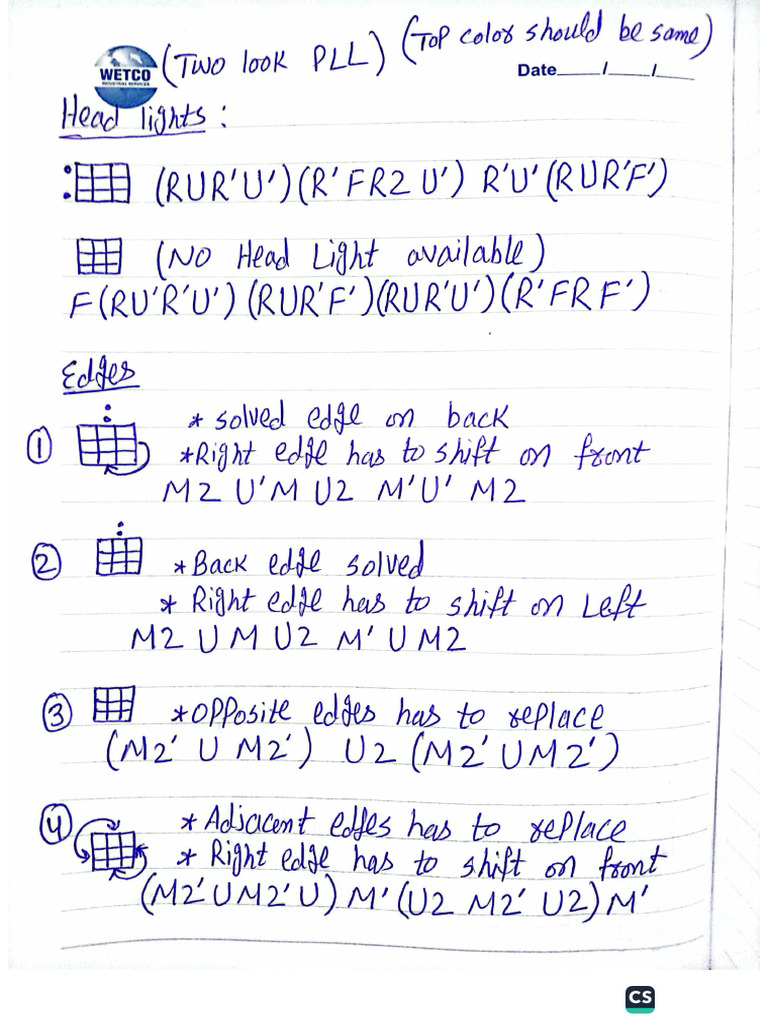 (Two look PLL) (Top color should be same)
WETCO
INDUSTRIAL SERVICES
Date____/____/____
Head lights :
(RUR'U')(R'FR2 U') R'U'(RUR'F')
(No Head Light available)
F(RU'R'U')(RUR'F')(RUR'U')(R'FRF')
Edges
1 * solved edge on back
*Right edge has to shift on front
M2 U'M U2 M'U' M2
2 *Back edge solved
* Right edge has to shift on Left
M2 U M U2 M' U M2
3 *opposite edges has to replace
(M2' U M2') U2 (M2' UM2')
4 * Adjacent edges has to replace
* Right edge has to shift on front
(M2'UM2'U) M'(U2 M2' U2)M'
CS